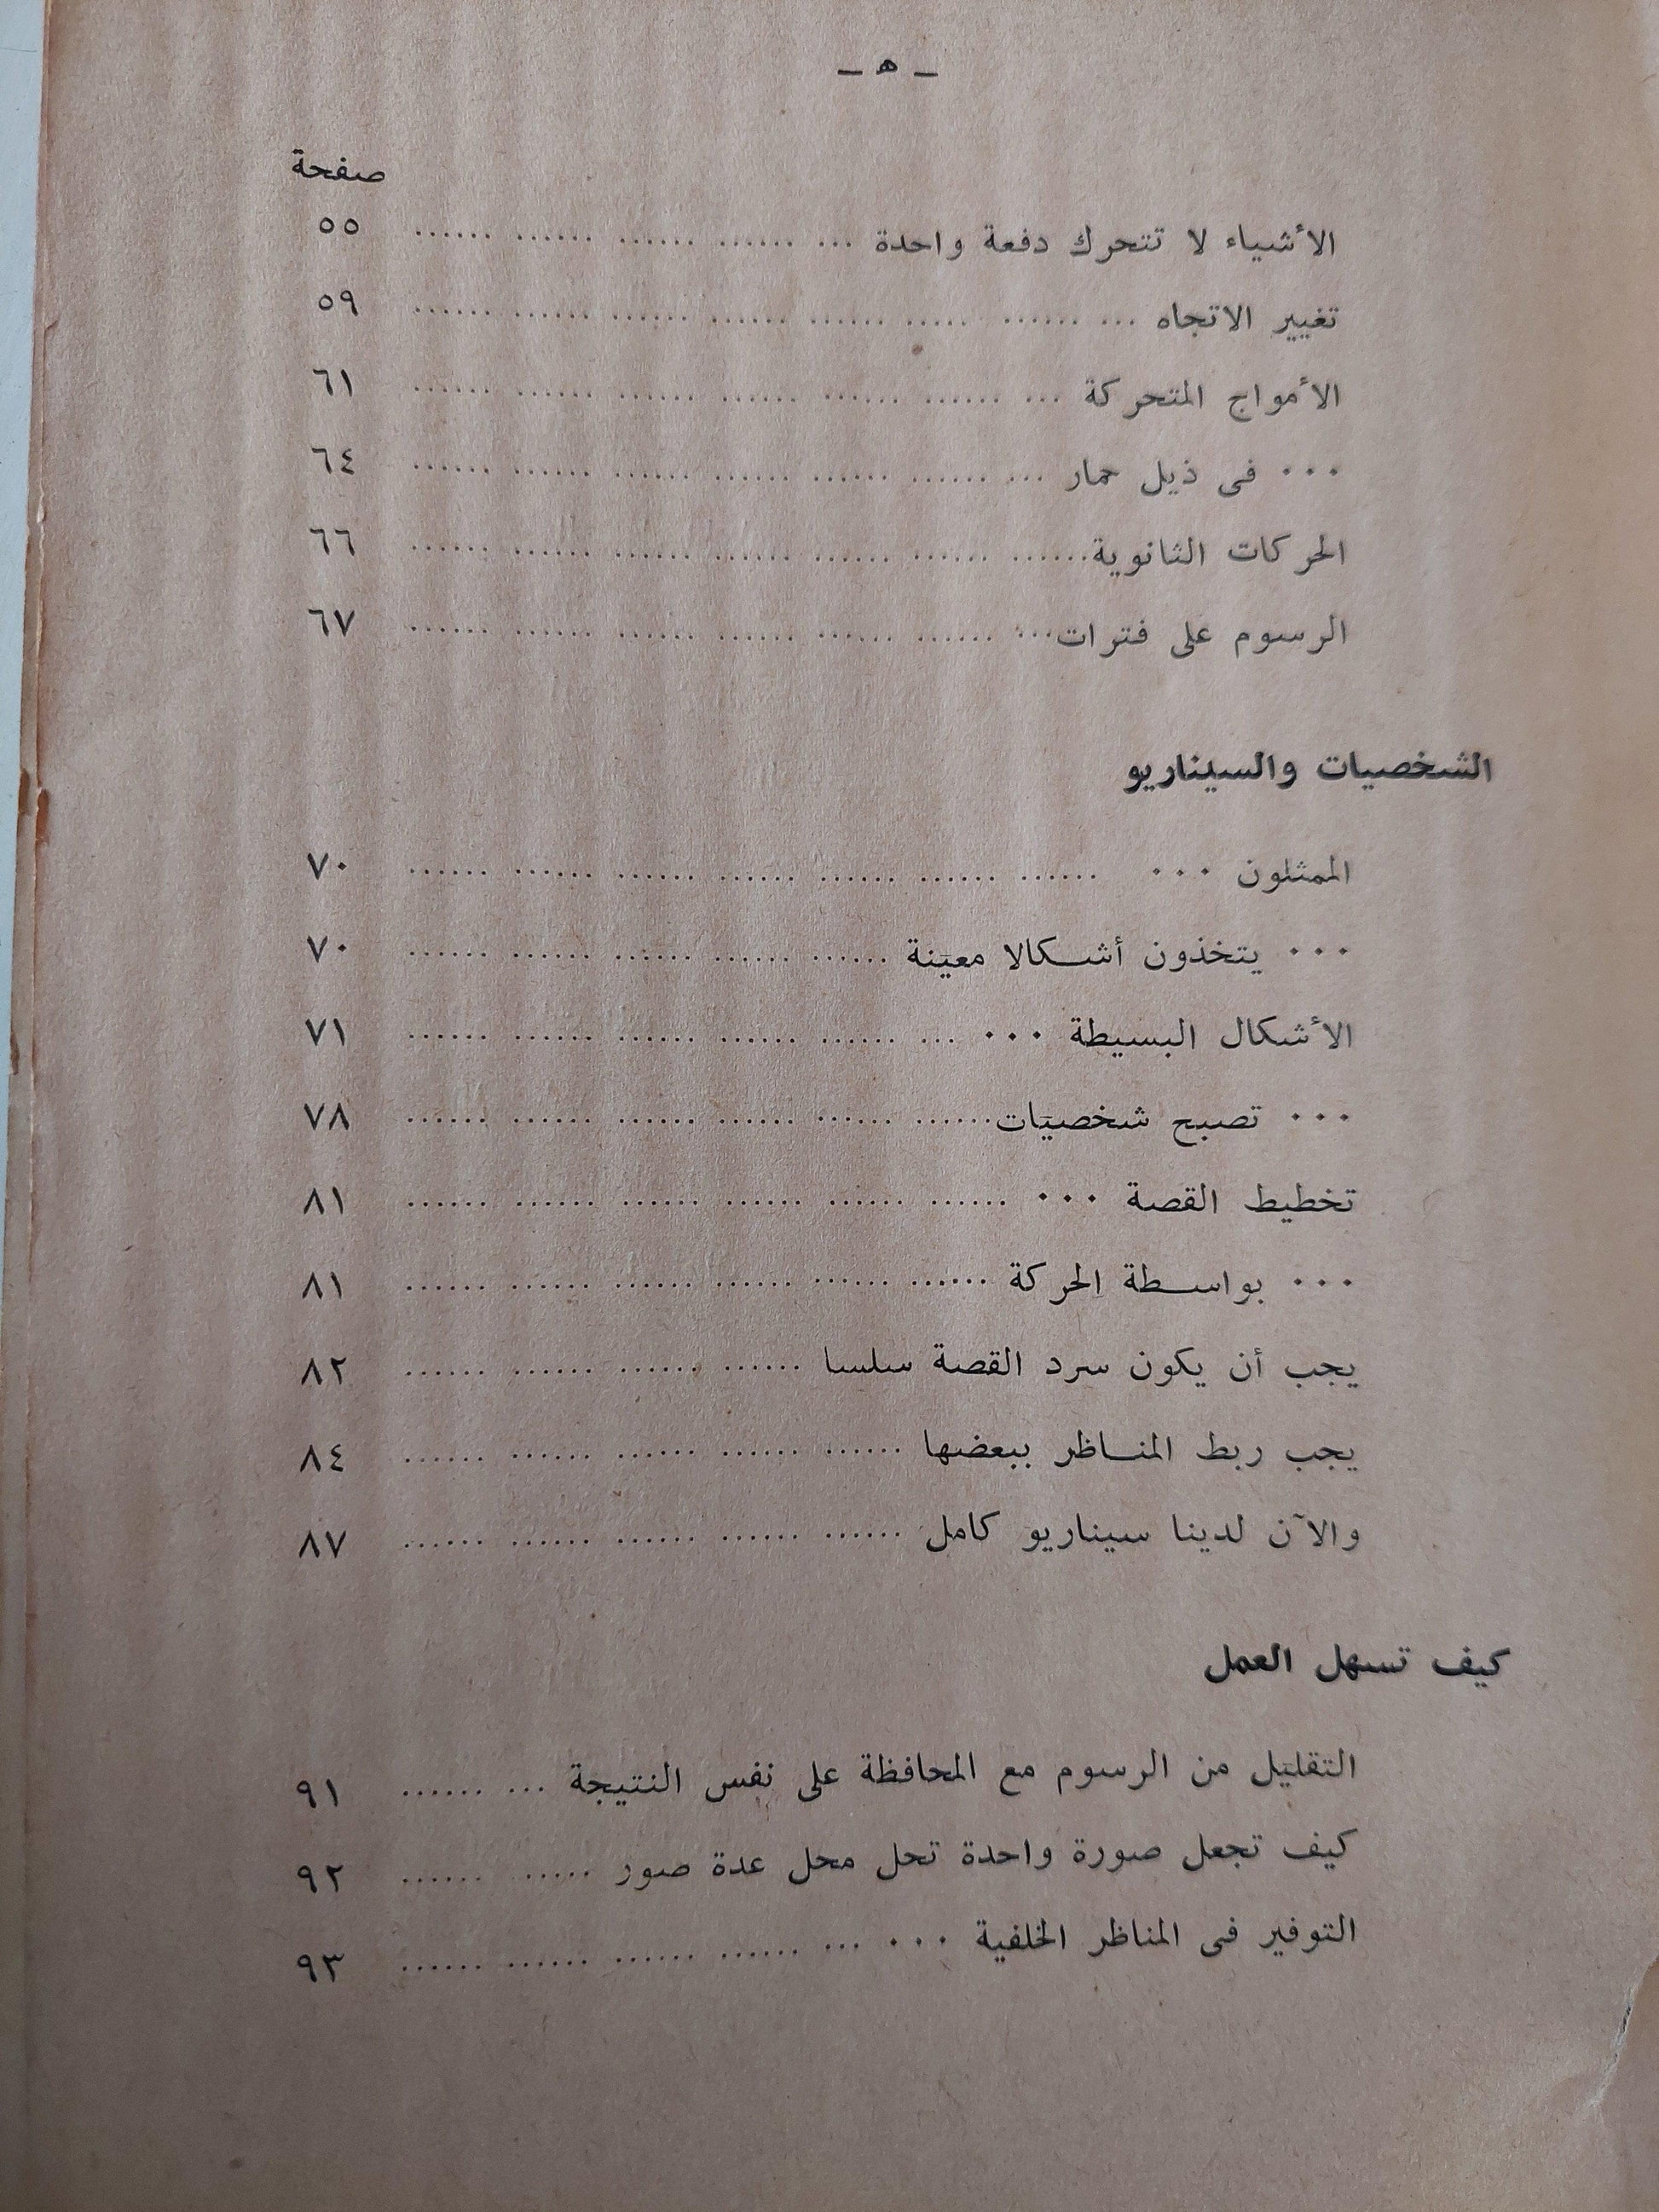 – ﻫ –
صفحة
الأشياء لا تتحرك دفعة واحدة ... ...... ...... ...... ...... ٥٥
تغيير الاتجاه ... ...... ...... ...... ...... ...... ...... ...... ٥٩
الأمواج المتحركة ... ...... ...... ...... ...... ...... ...... ٦١
... فى ذيل حمار ... ...... ...... ...... ...... ...... ...... ٦٤
الحركات الثانوية ...... ...... ...... ...... ...... ...... ...... ٦٦
الرسوم على فترات ... ...... ...... ...... ...... ...... ...... ٦٧
الشخصيات والسيناريو
الممثلون ... ...... ...... ...... ...... ...... ...... ...... ٧٠
... يتخذون أشكالا معينة ...... ...... ...... ...... ...... ٧٠
الأشكال البسيطة ... ... ...... ...... ...... ...... ...... ٧١
... تصبح شخصيات ...... ...... ...... ...... ...... ...... ٧٨
تخطيط القصة ... ...... ...... ...... ...... ...... ...... ٨١
... بواسطة الحركة ...... ...... ...... ...... ...... ...... ٨١
يجب أن يكون سرد القصة سلسا ...... ...... ...... ...... ٨٢
يجب ربط المناظر ببعضها ...... ...... ...... ...... ...... ٨٤
والآن لدينا سيناريو كامل ...... ...... ...... ...... ...... ٨٧
كيف تسهل العمل
التقليل من الرسوم مع المحافظة على نفس النتيجة ... ...... ٩١
كيف تجعل صورة واحدة تحل محل عدة صور ..... ...... ٩٢
التوفير فى المناظر الخلفية ... ... ...... ...... ...... ...... ٩٣